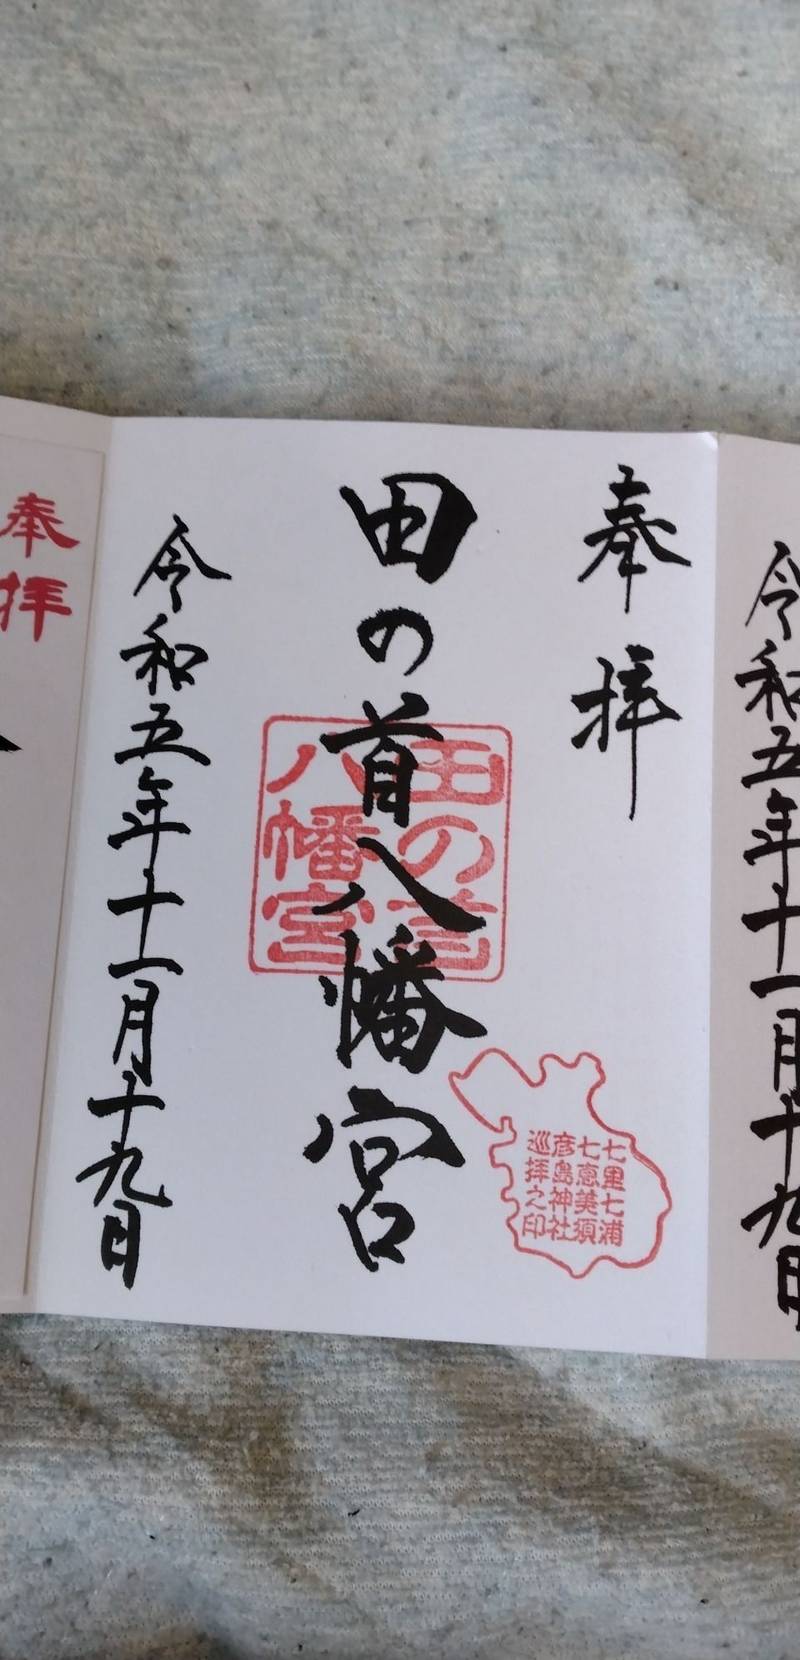 令和五年十一月十九日
奉拝
田の首八幡宮
田の首
八幡宮
七里七浦
七恵美須
彦島神社
巡拝之印
令和五年十一月十九日
奉拝